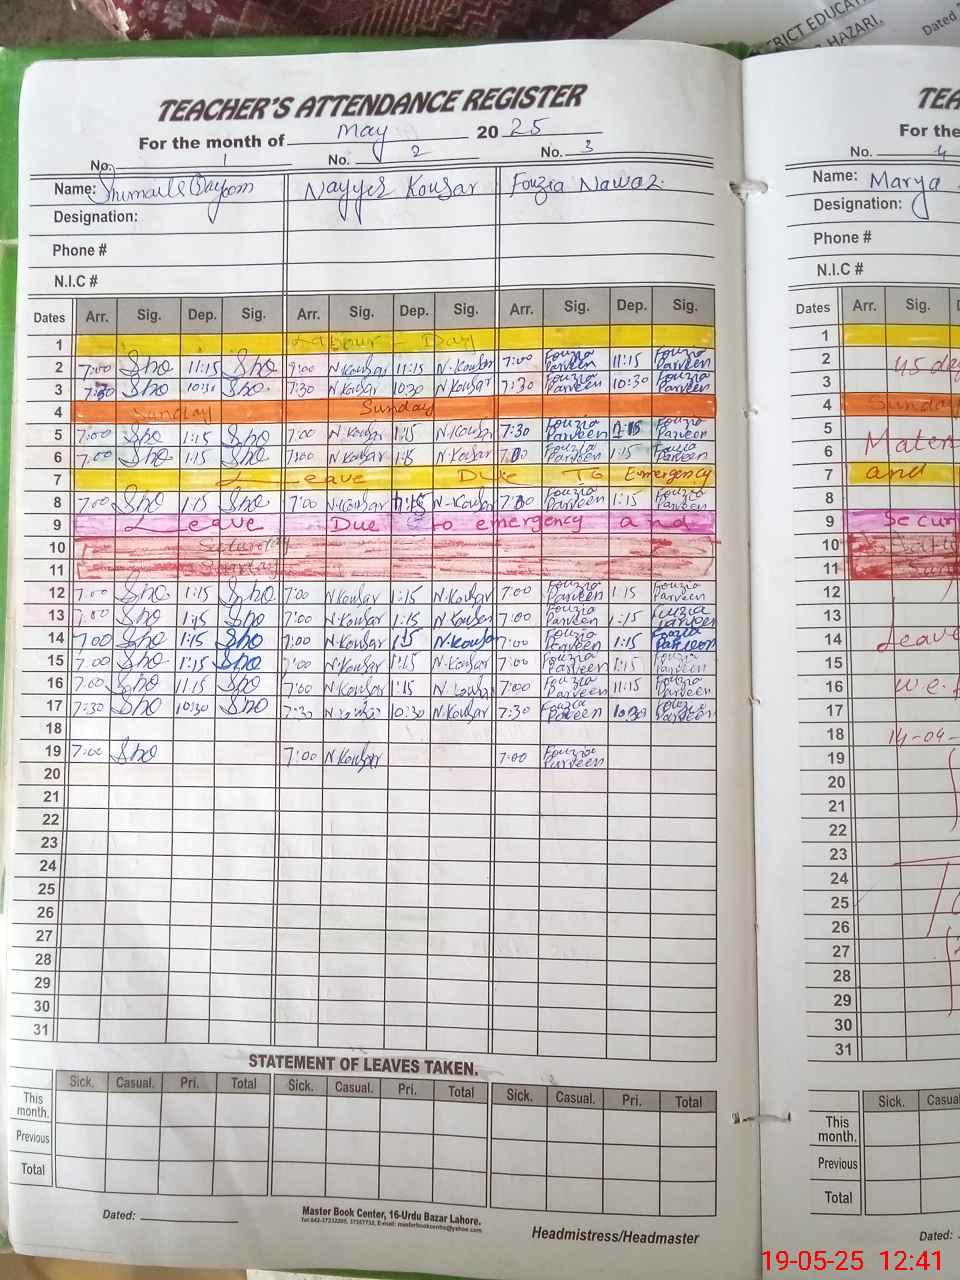 RICT EDUCAT
HAZARI.
Dated
TEACHER'S ATTENDANCE REGISTER
For the month of May 2025
No. 1 No. 2 No. 3
Name: Nayyer Kousar Fouzia Nawaz
Designation:
Phone #
N.I.C #
Dates Arr. Sig. Dep. Sig. Arr. Sig. Dep. Sig. Arr. Sig. Dep. Sig.
1 Labour - Day
2 7:00 Sho 11:15 Sho 7:00 N.Kousar 11:15 N.Kousar 7:00 Fouzia Parveen 11:15 Fouzia Parveen
3 7:30 Sho 10:30 Sho 7:30 N.Kousar 10:30 N.Kousar 7:30 Fouzia Parveen 10:30 Fouzia Parveen
4 Sunday Sunday
5 7:00 Sho 1:15 Sho 7:00 N.Kousar 1:15 N.Kousar 7:30 Fouzia Parveen 1:15 Fouzia Parveen
6 7:00 Sho 1:15 Sho 7:00 N.Kousar 1:15 N.Kousar 7:00 Fouzia Parveen 1:15 Fouzia Parveen
7 Leave Due To Emergency
8 7:00 Sho 1:15 Sho 7:00 N.Kousar 1:15 N.Kousar 7:00 Fouzia Parveen 1:15 Fouzia Parveen
9 Leave Due to emergency and
10 Saturday
11 Sunday
12 7:00 Sho 1:15 Sho 7:00 N.Kousar 1:15 N.Kousar 7:00 Fouzia Parveen 1:15 Fouzia Parveen
13 7:00 Sho 1:15 Sho 7:00 N.Kousar 1:15 N.Kousar 7:00 Fouzia Parveen 1:15 Fouzia Parveen
14 7:00 Sho 1:15 Sho 7:00 N.Kousar 1:15 N.Kousar 7:00 Fouzia Parveen 1:15 Fouzia Parveen
15 7:00 Sho 1:15 Sho 7:00 N.Kousar 1:15 N.Kousar 7:00 Fouzia Parveen 1:15 Fouzia Parveen
16 7:00 Sho 11:15 Sho 7:00 N.Kousar 11:15 N.Kousar 7:00 Fouzia Parveen 11:15 Fouzia Parveen
17 7:30 Sho 10:30 Sho 7:30 N.Kousar 10:30 N.Kousar 7:30 Fouzia Parveen 10:30 Fouzia Parveen
18
19 7:00 Sho 7:00 N.Kousar 7:00 Fouzia Parveen
20
21
22
23
24
25
26
27
28
29
30
31
STATEMENT OF LEAVES TAKEN.
Sick. Casual. Pri. Total Sick. Casual. Pri. Total Sick. Casual. Pri. Total
This month.
Previous
Total
Dated:
Master Book Center, 16-Urdu Bazar Lahore.
Headmistress/Headmaster
TEA
For the
No. 4
Name: Marya
Designation:
Phone #
N.I.C #
Dates Arr. Sig.
1
2 45 da
3
4 Sunday
5
6 Matern
7 and
8
9 Secur
10
11
12
13
14 Leave
15
16 w.e.f
17
18 14-04-
19
20
21
22
23
24
25
26
27
28
29
30
31
Sick. Casua
This month.
Previous
Total
Dated:
19-05-25 12:41